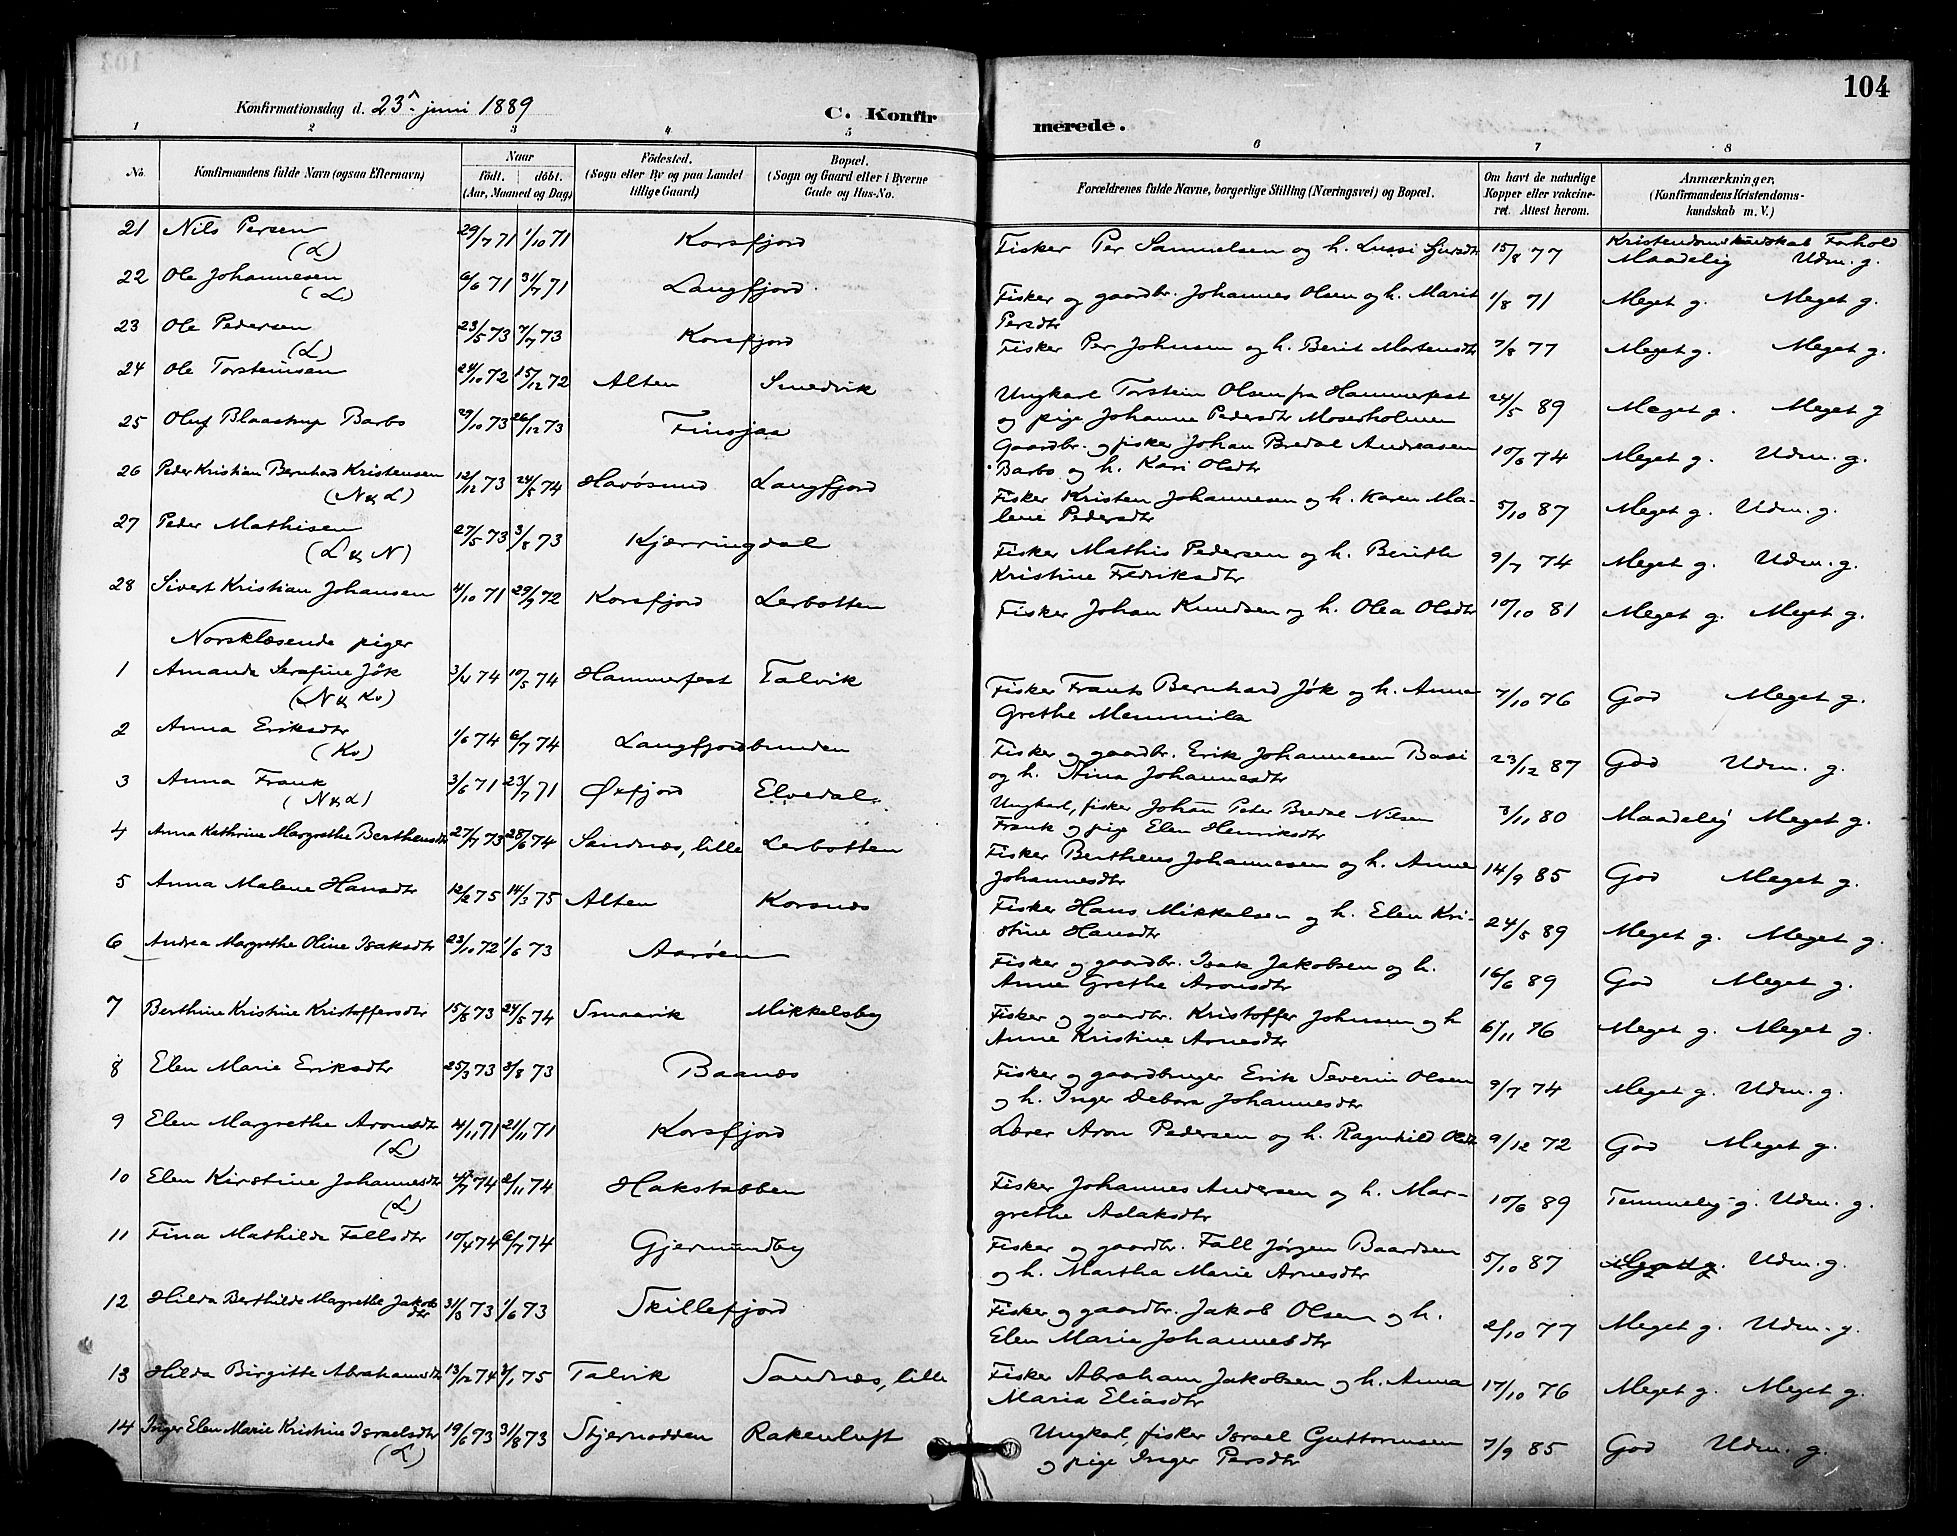 104
Konfirmationsdag d. 23. juni 1889
C. Konfirmerede.
1 2 3 4 5 6 7 8
No.
Konfirmandens fulde Navn (ogsaa Efternavn)
Naar
födt. döbt.
(Aar, Maaned og Dag)
Födested.
(Sogn eller By og paa Landet
tillige Gaard)
Bopæl.
(Sogn og Gaard eller i Byerne
Gade og Hus-No.
Forældrenes fulde Navne, borgerlige Stilling (Næringsvei) og Bopæl.
Om havt de naturlige
Kopper eller vakcine-
ret. Attest herom.
Anmærkninger,
(Konfirmandens Kristendoms-
kundskab m. V.)
Kristendomskundskab Forhold
21 Nils Persen (L) 29/7 71 1/10 71 Korsfjord Fisker Per Samuelsen og h. Lussi 15/8 77 Maadelig Udm. g.
22 Ole Johannesen (L) 6/6 71 31/7 71 Langfjord Fisker og gaardbr. Johannes Olsen og h. Marit
Persdtr 1/8 71 Meget g. Meget g.
23 Ole Pedersen (L) 23/5 73 7/7 73 Korsfjord Fisker Per Johnsen og h. Berit Mortensdtr 7/8 77 Meget g. Meget g.
24 Ole Torsteinsen 24/10 72 15/12 72 Alten Smedvik Ungkarl Torstein Olsen fra Hammerfest
og pige Johanne Pedersdtr Moserholmen 24/5 89 Meget g. Meget g
25 Oluf Blaastrup Barbo 29/10 73 26/12 73 Finsjaa Gaardbr. og fisker Johan Bredal Andreasen
Barbo og h. Kari Olsdtr 10/6 74 Meget g. Udm. g.
26 Peder Kristian Bernhard Kristensen (N & L) 12/12 73 24/5 74 Havösund Langfjord Fisker Kristen Johannesen og h. Karen Ma-
lene Pedersdtr 5/10 87 Meget g. Udm. g.
27 Peder Mathisen (L & N) 27/5 73 3/8 73 Kjærringdal Fisker Mathis Pedersen og h. Berith
Kristine Fredriksdtr 9/7 74 Meget g. Udm. g.
28 Sivert Kristian Johansen 4/10 71 29/9 72 Korsfjord Lerbotten Fisker Johan Knudsen og h. Olea Olsdtr 10/10 81 Meget g. Meget g.
Norsklæsende piger
1 Amanda Serafine Jök (N & Kv) 3/4 74 10/5 74 Hammerfest Talvik Fisker Frants Bernhard Jök og h. Anna
Grethe Memmila 7/10 76 God Meget g.
2 Anna Eriksdtr (Kv) 1/6 74 6/7 74 Langfjordbunden Fisker og gaardbr. Erik Johannesen Basi
og h. Stina Johannesdtr 23/12 87 God Udm. g.
3 Anna Frank (N & L) 3/6 71 23/7 71 Øxfjord Elvedal Ungkarl, fisker Johan Peter Bredal Nilsen
Frank og pige Elen Henriksdtr 3/11 80 Maadelig Meget g.
4 Anna Kathrine Margrethe Berthensdtr 27/7 73 28/6 74 Sandnæs, lille Lerbotten Fisker Berthens Johannesen og h. Anne
Johannesdtr 14/9 85 God Meget g.
5 Anna Malene Hansdtr 12/2 75 14/3 75 Alten Korsnæs Fisker Hans Mikkelsen og h. Elen Kri-
stine Hansdtr 24/5 89 Meget g. Meget g.
6 Andrea Margrethe Oline Isaksdtr 23/10 72 1/6 73 Aaröen Fisker og gaardbr. Isak Jakobsen og h.
Anne Grethe Aronsdtr 16/6 89 God Meget g.
7 Berthine Kristine Kristoffersdtr 15/8 73 24/5 74 Smaavik Mikkelsby Fisker og gaardbr. Kristoffer Johnsen og h
Anne Kristine Arnesdtr 6/11 76 Meget g. Meget g.
8 Elen Marie Eriksdtr 25/3 73 3/8 73 Baanæs Fisker og gaardbruger Erik Severin Olsen
og h. Inger Debora Johannesdtr 9/7 74 Meget g. Udm. g.
9 Elen Margrethe Aronsdtr (L) 4/11 71 21/11 71 Korsfjord Lærer Aron Pedersen og h. Ragnhild Olsdtr 9/12 72 God Meget g.
10 Elen Kirstine Johannesdtr (L) 74 2/11 74 Hakstabben Fisker Johannes Andersen og h. Mar-
grethe Aslaksdtr 10/6 89 Temmelig g. Udm. g.
11 Fina Mathilde Fallsdtr 10/4 74 6/7 74 Gjermundby Fisker og gaardbr. Fall Jørgen Baardsen
og h. Martha Marie Arnesdtr 5/10 87 Meget g. Udm. g.
12 Hilda Berthilde Magrethe Jakobsdtr 31/3 73 1/6 73 Skillefjord Fisker og gaardbr. Jakob Olsen og h.
Elen Marie Johannesdtr 2/10 77 Meget g. Udm. g.
13 Hilda Birgitte Abrahamsdtr 13/12 74 3/1 75 Talvik Sandnæs, lille Fisker Abraham Jakobsen og h. Anna
Maria Eliasdtr 17/10 76 Meget g. Meget g.
14 Inger Elen Marie Kristine Israelsdtr (L) 19/6 73 31/8 73 Stjernodden Rakenluft Ungkarl, fisker Israel Guttormsen
og pige Inger Persdtr 7/9 85 God Udm. g.